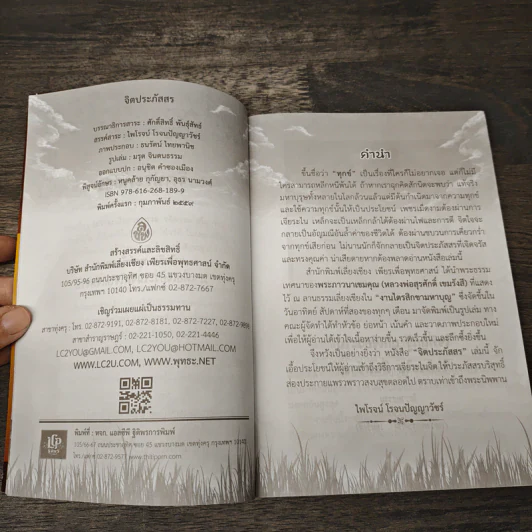 จิตประภัสสร
บรรณาธิการสาระ : ศักดิ์สิทธิ์ พันธุ์สัทธ์
สรรค์สาระ : ไพโรจน์ โรจนปัญญาวัชร์
ภาพประกอบ : ธนรัตน์ ไทยพานิช
รูปเล่ม : มรุต จินตนธรรม
ออกแบบปก : อนุชิต คำซองเมือง
พิสูจน์อักษร : หนูคล้าย กุกัญยา, อุธร นามวงศ์
ISBN 978-616-268-189-9
พิมพ์ครั้งแรก : กุมภาพันธ์ ๒๕๕๗
สร้างสรรค์และลิขสิทธิ์
บริษัท สำนักพิมพ์เลี่ยงเชียง เพียรเพื่อพุทธศาสน์ จำกัด
105/95-96 ถนนประชาอุทิศ ซอย 45 แขวงบางมด เขตทุ่งครุ
กรุงเทพฯ 10140 โทร./แฟกซ์ 02-872-7667
เชิญร่วมเผยแผ่เป็นธรรมทาน
สาขาทุ่งครุ : โทร. 02-872-9191, 02-872-8181, 02-872-7227, 02-872-9898
สาขาสำราญราษฎร์ : 02-221-1050, 02-221-4446
LC2YOU@GMAIL.COM, LC2YOU@HOTMAIL.COM
WWW.LC2U.COM, WWW.พุทธะ.NET
พิมพ์ที่ : หจก. แอลซีพี ฐิติพรการพิมพ์
105/95-67 ถนนประชาอุทิศ ซอย 45 แขวงบางมด เขตทุ่งครุ กรุงเทพฯ 10140
โทร./แฟกซ์ 02-872-8577
LCP
คำนำ
ขึ้นชื่อว่า "ทุกข์" เป็นเรื่องที่ใครก็ไม่อยากเจอ แต่ก็ไม่มี
ใครสามารถหลีกหนีพ้นได้ ถ้าหากเราฉุกคิดสักนิดจะพบว่า แท้จริง
มหาบุรุษทั้งหลายในโลกล้วนแล้วแต่มีต้นกำเนิดมาจากความทุกข์
และใช้ความทุกข์นั้นให้เป็นประโยชน์ เพชรเม็ดงามต้องผ่านการ
เจียระไน เหล็กจะเป็นเหล็กกล้าได้ต้องผ่านไฟและการตี จิตใจจะ
กลายเป็นอัญมณีอันล้ำค่าของชีวิตได้ ต้องผ่านขบวนการเคี่ยวกรำ
จากทุกข์เสียก่อน ไม่นานนักก็จักกลายเป็นจิตประภัสสรที่เจิดจรัส
และทรงคุณค่า น่าเสียดายหากต้องพลาดอ่านหนังสือเล่มนี้
สำนักพิมพ์เลี่ยงเชียง เพียรเพื่อพุทธศาสน์ ได้นำพระธรรม
เทศนาของพระภาวนาเขมคุณ (หลวงพ่อสุรศักดิ์ เขมรังสี) ที่แสดง
ไว้ ณ ลานธรรมเลี่ยงเชียงใน "งานไตรสิกขามหาบุญ" ซึ่งจัดขึ้นใน
วันอาทิตย์ สัปดาห์ที่สองของทุกๆ เดือน มาจัดพิมพ์เป็นรูปเล่ม ทาง
คณะผู้จัดทำได้ทำหัวข้อ ย่อหน้า เน้นคำ และวาดภาพประกอบใหม่
เพื่อให้ผู้อ่านได้เข้าใจเนื้อหาง่ายขึ้น รวดเร็วขึ้น และลึกซึ้งยิ่งขึ้น
จึงหวังเป็นอย่างยิ่งว่า หนังสือ "จิตประภัสสร" เล่มนี้ จัก
เอื้อประโยชน์ให้ผู้อ่านเข้าถึงวิธีการเจียระไนจิต ให้ประภัสสรบริสุทธิ์
ส่องประกายแพรวพราวสงบสุขตลอดไป ตราบเท่าเข้าถึงพระนิพพาน
ไพโรจน์ โรจนปัญญาวัชร์